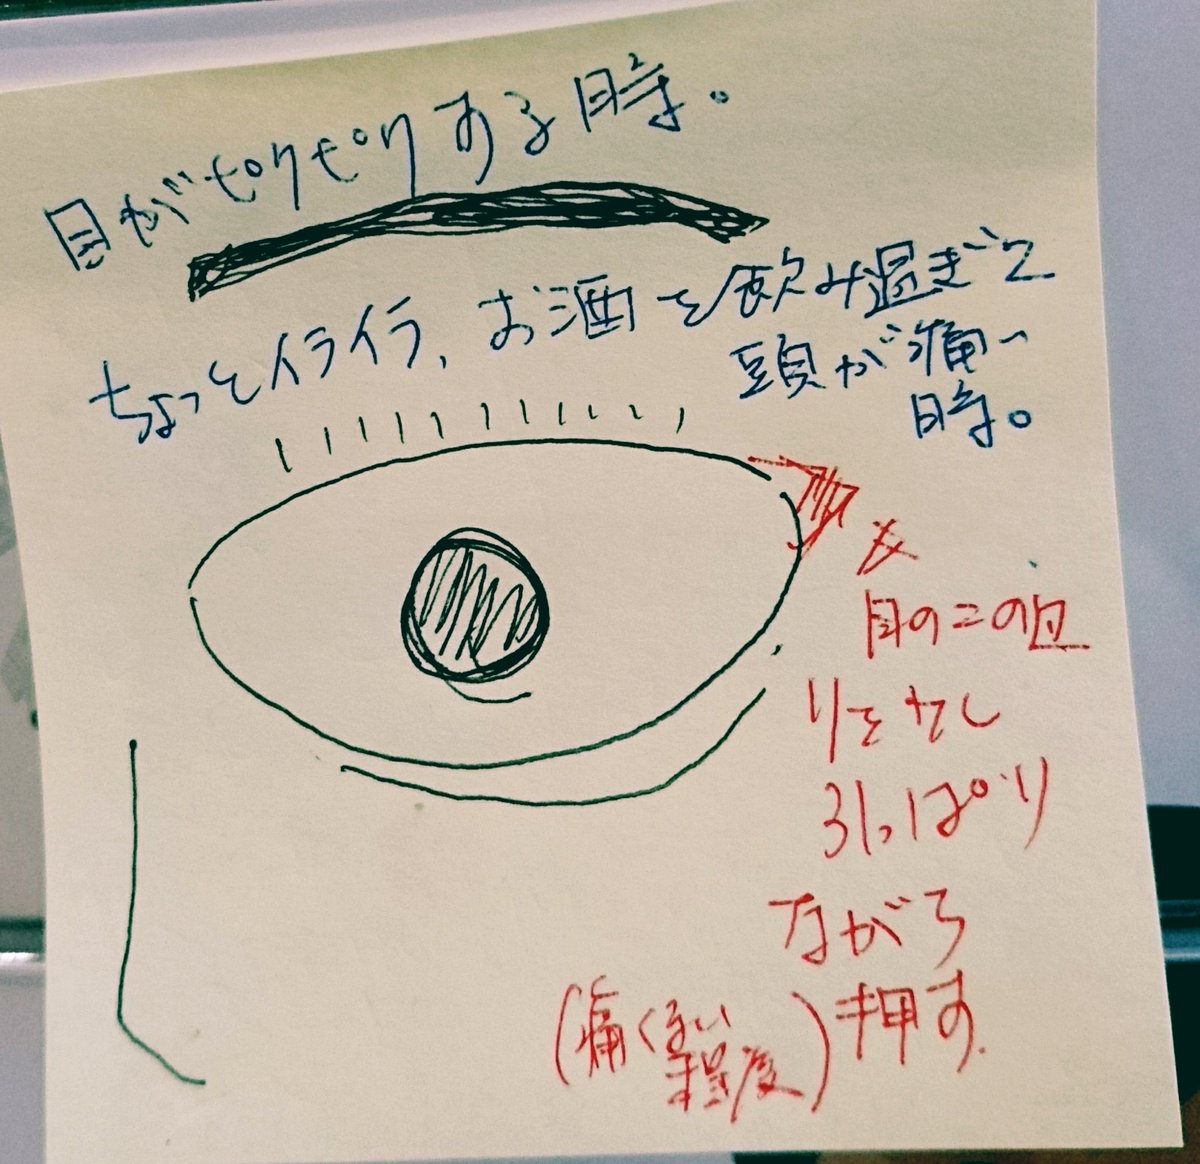 目がピリピリする時。
ちょっとイライラ、お酒を飲み過ぎて
頭が痛い
時。
目のこの辺
りを少し
引っぱり
ながら
(痛くない
程度)押す.